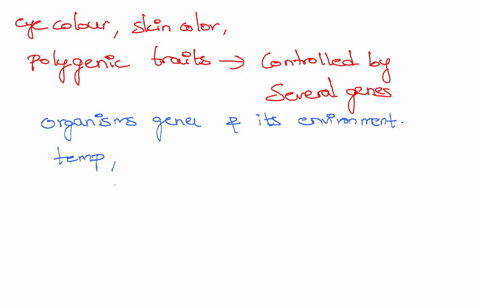 eye colour, skin color,
polygenic traits → Controlled by
Several genes
Organisms genes & its environment.
temp,